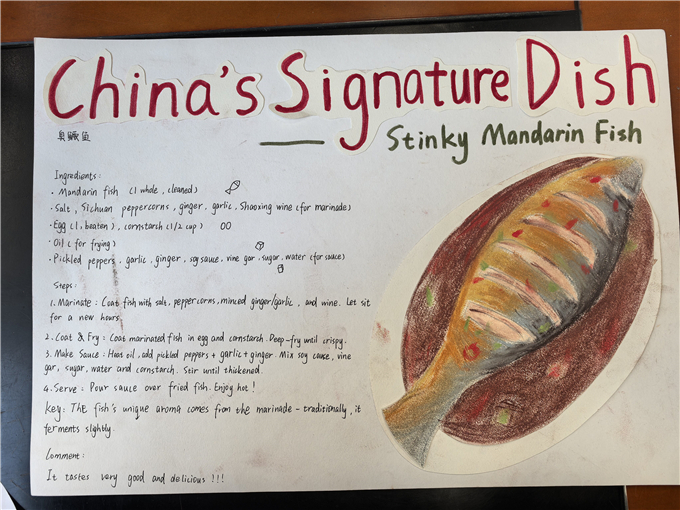 China's Signature Dish
Stinky Mandarin Fish
臭鳜鱼
Ingredients:
· Mandarin fish (1 whole, cleaned)
· Salt, Sichuan peppercorns, ginger, garlic, Shaoxing wine (for marinade)
· Egg (1, beaten), cornstarch (1/2 cup)
· Oil (for frying)
· Pickled peppers, garlic, ginger, soy sauce, vine gar, sugar, water (for sauce)
Steps:
1. Marinate: Coat fish with salt, peppercorns, minced ginger/garlic, and wine. Let sit
for a new hours.
2. Coat & Fry: Coat marinated fish in egg and cornstarch. Deep-fry until crispy.
3. Make Sauce: Heat oil, add pickled peppers + garlic + ginger. Mix soy cause, vine
gar, sugar, water and cornstarch. Stir until thickened.
4. Serve: Pour sauce over fried fish. Enjoy hot!
key: The fish's unique aroma comes from the marinade - traditionally, it
ferments slightly.
Comment:
It tastes very good and delicious!!!